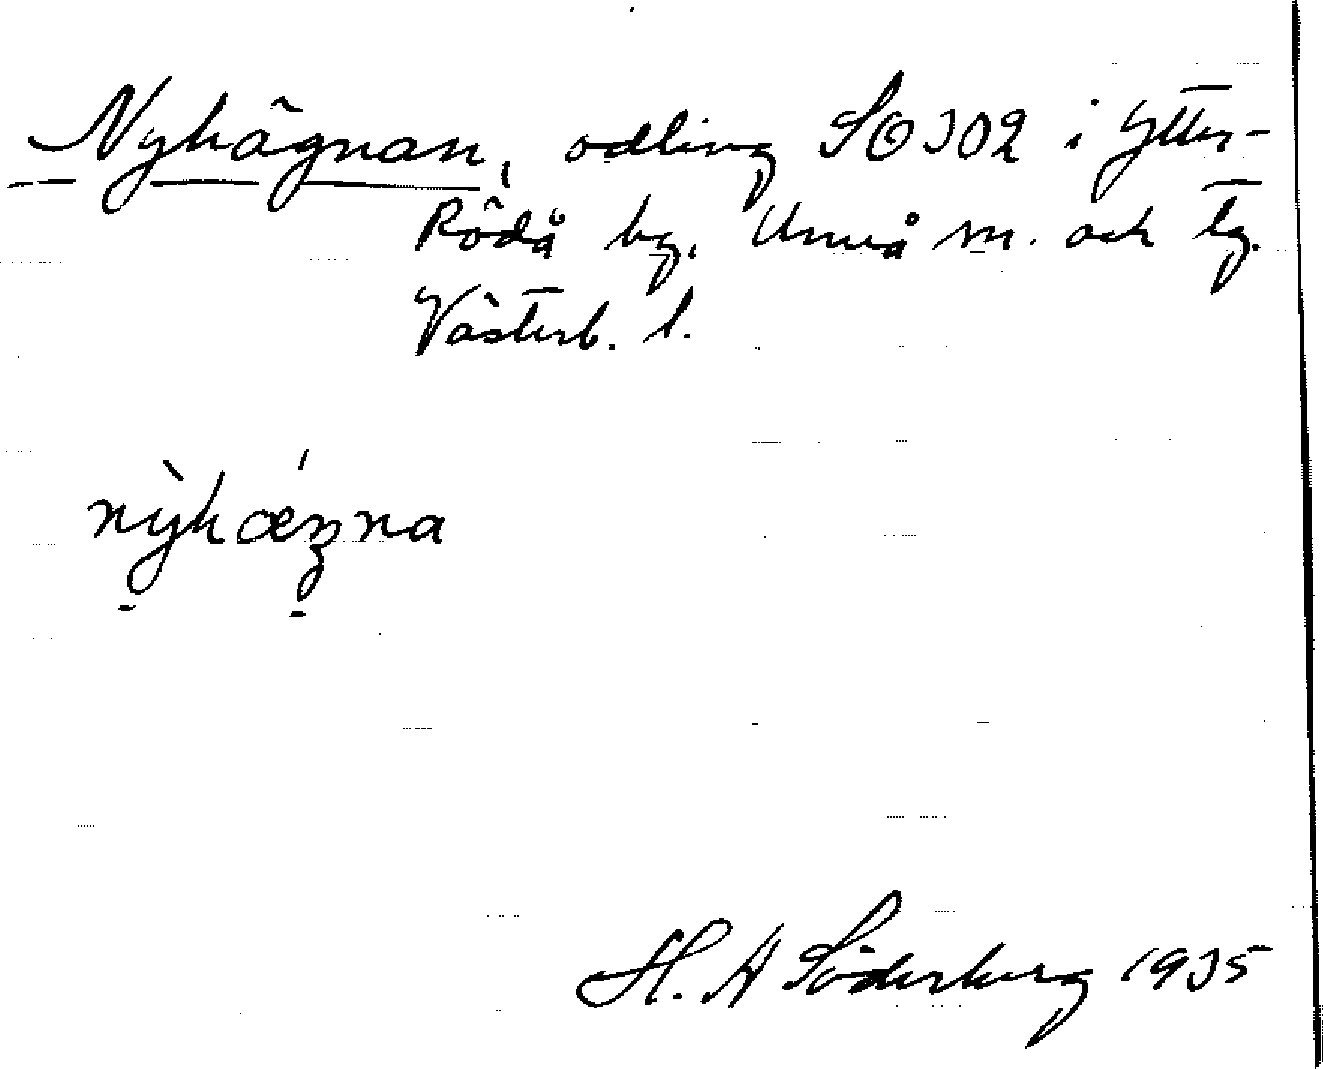 Nyhägnan, odling SO 302 i Ytter-
Rödå by, Umeå sn. och tg.
Västerb. l.
nỳhæŋna
H. A Söderberg 1935